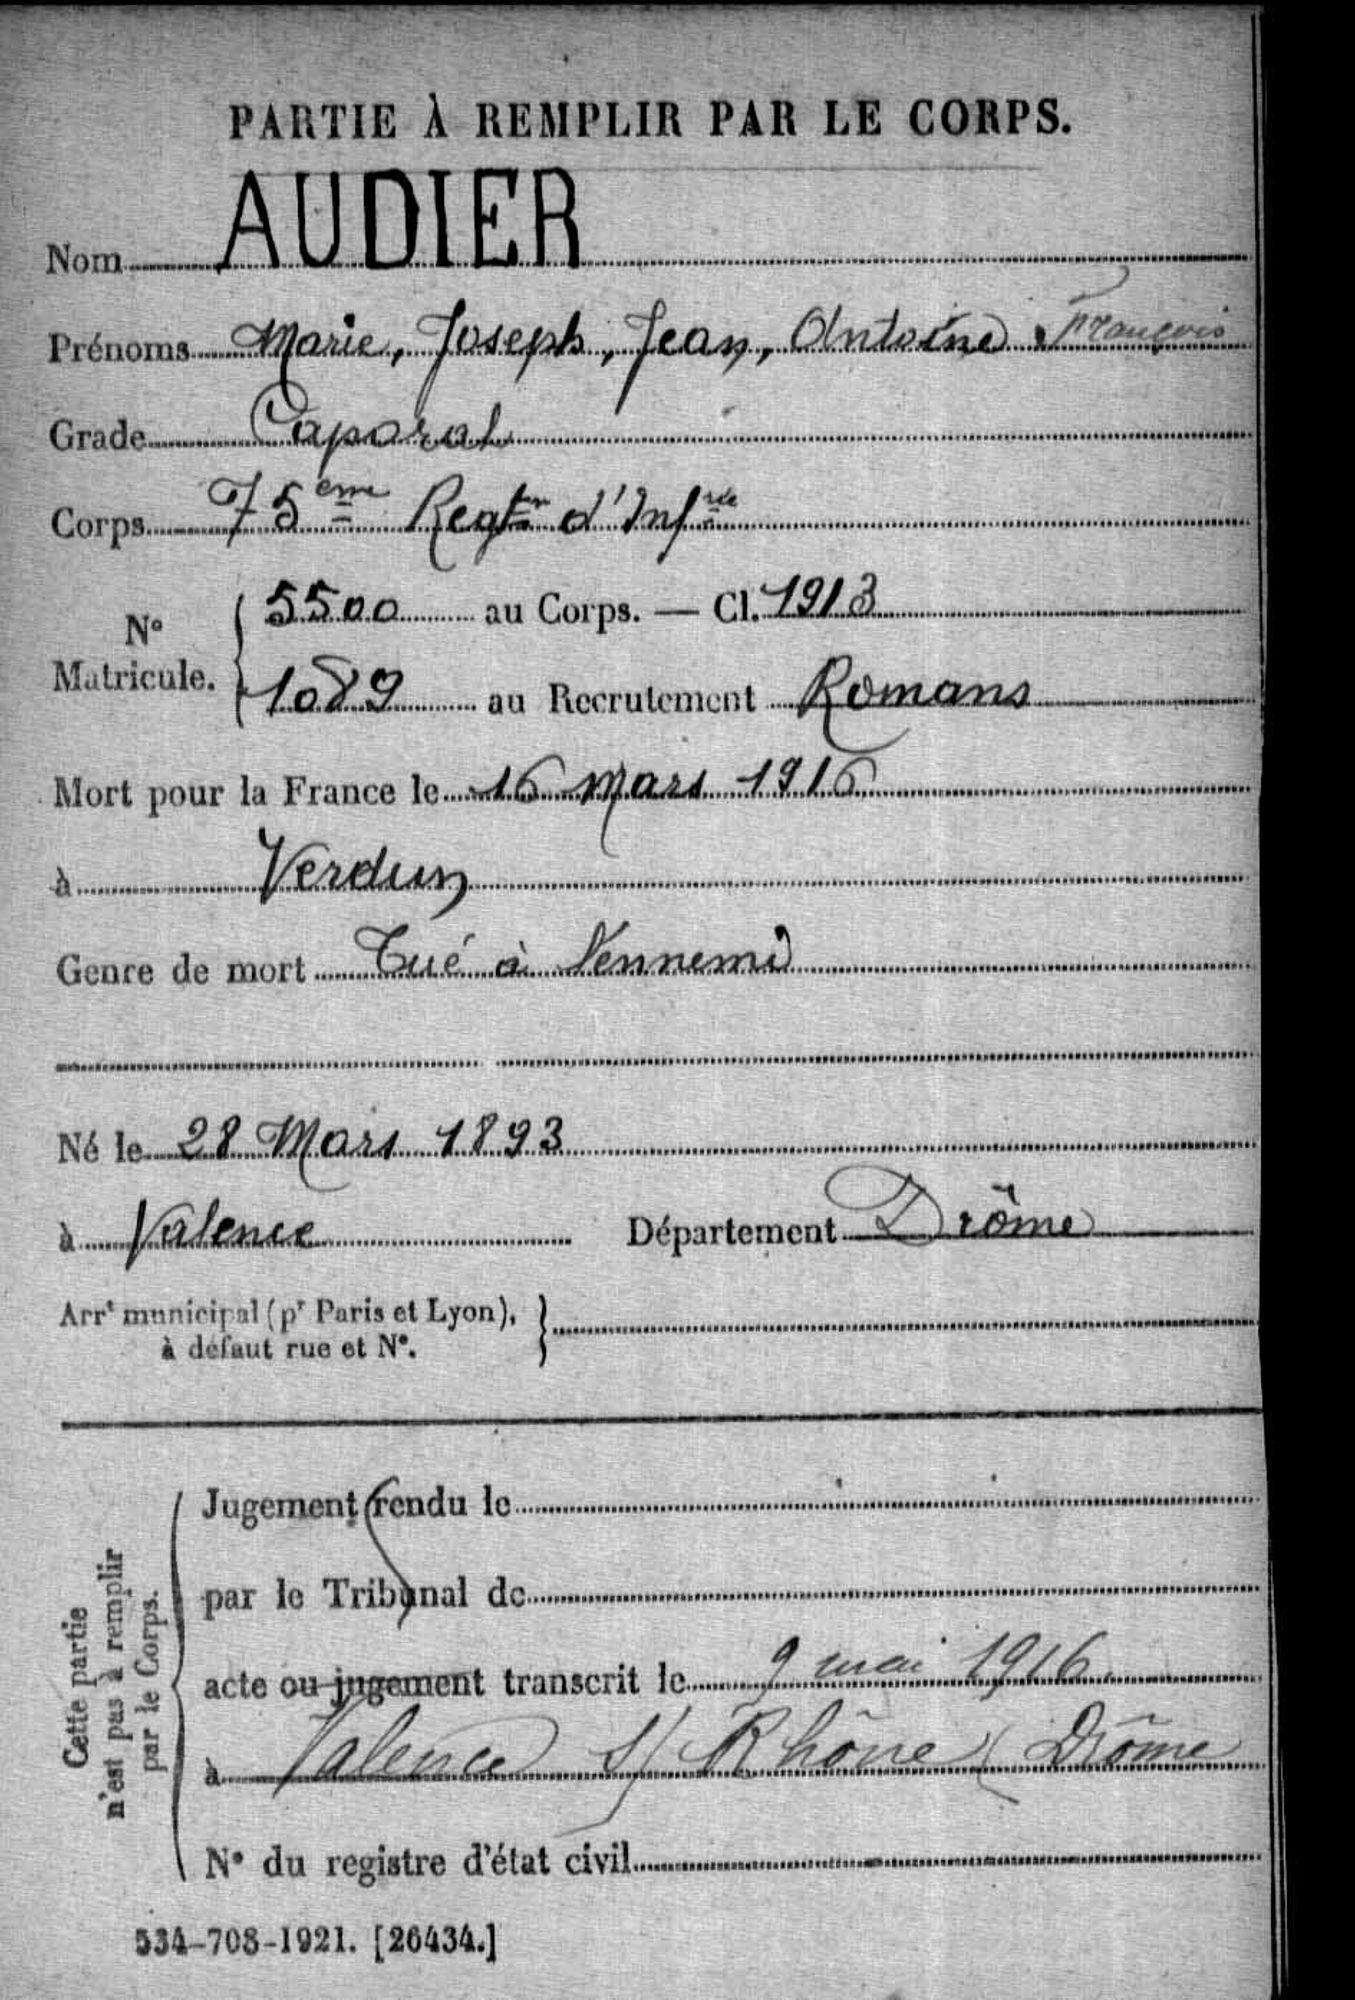 PARTIE À REMPLIR PAR LE CORPS.
Nom AUDIER
Prénoms Marie, Joseph, Jean, Antoine François
Grade Caporal
Corps 75eme Regtm d'Infrie
N° Matricule. 5500 au Corps. — Cl. 1913
1089 au Recrutement Romans
Mort pour la France le 16 Mars 1916
à Verdun
Genre de mort Tué à l'ennemi
Né le 28 Mars 1893
à Valence Département Drôme
Arrt municipal (pr Paris et Lyon),
à défaut rue et N°.
Cette partie
n'est pas à remplir
par le Corps.
Jugement rendu le
par le Tribunal de
acte ou jugement transcrit le 9 mai 1916
à Valence s/ Rhône (Drôme
N° du registre d'état civil
534-708-1921. [26434.]